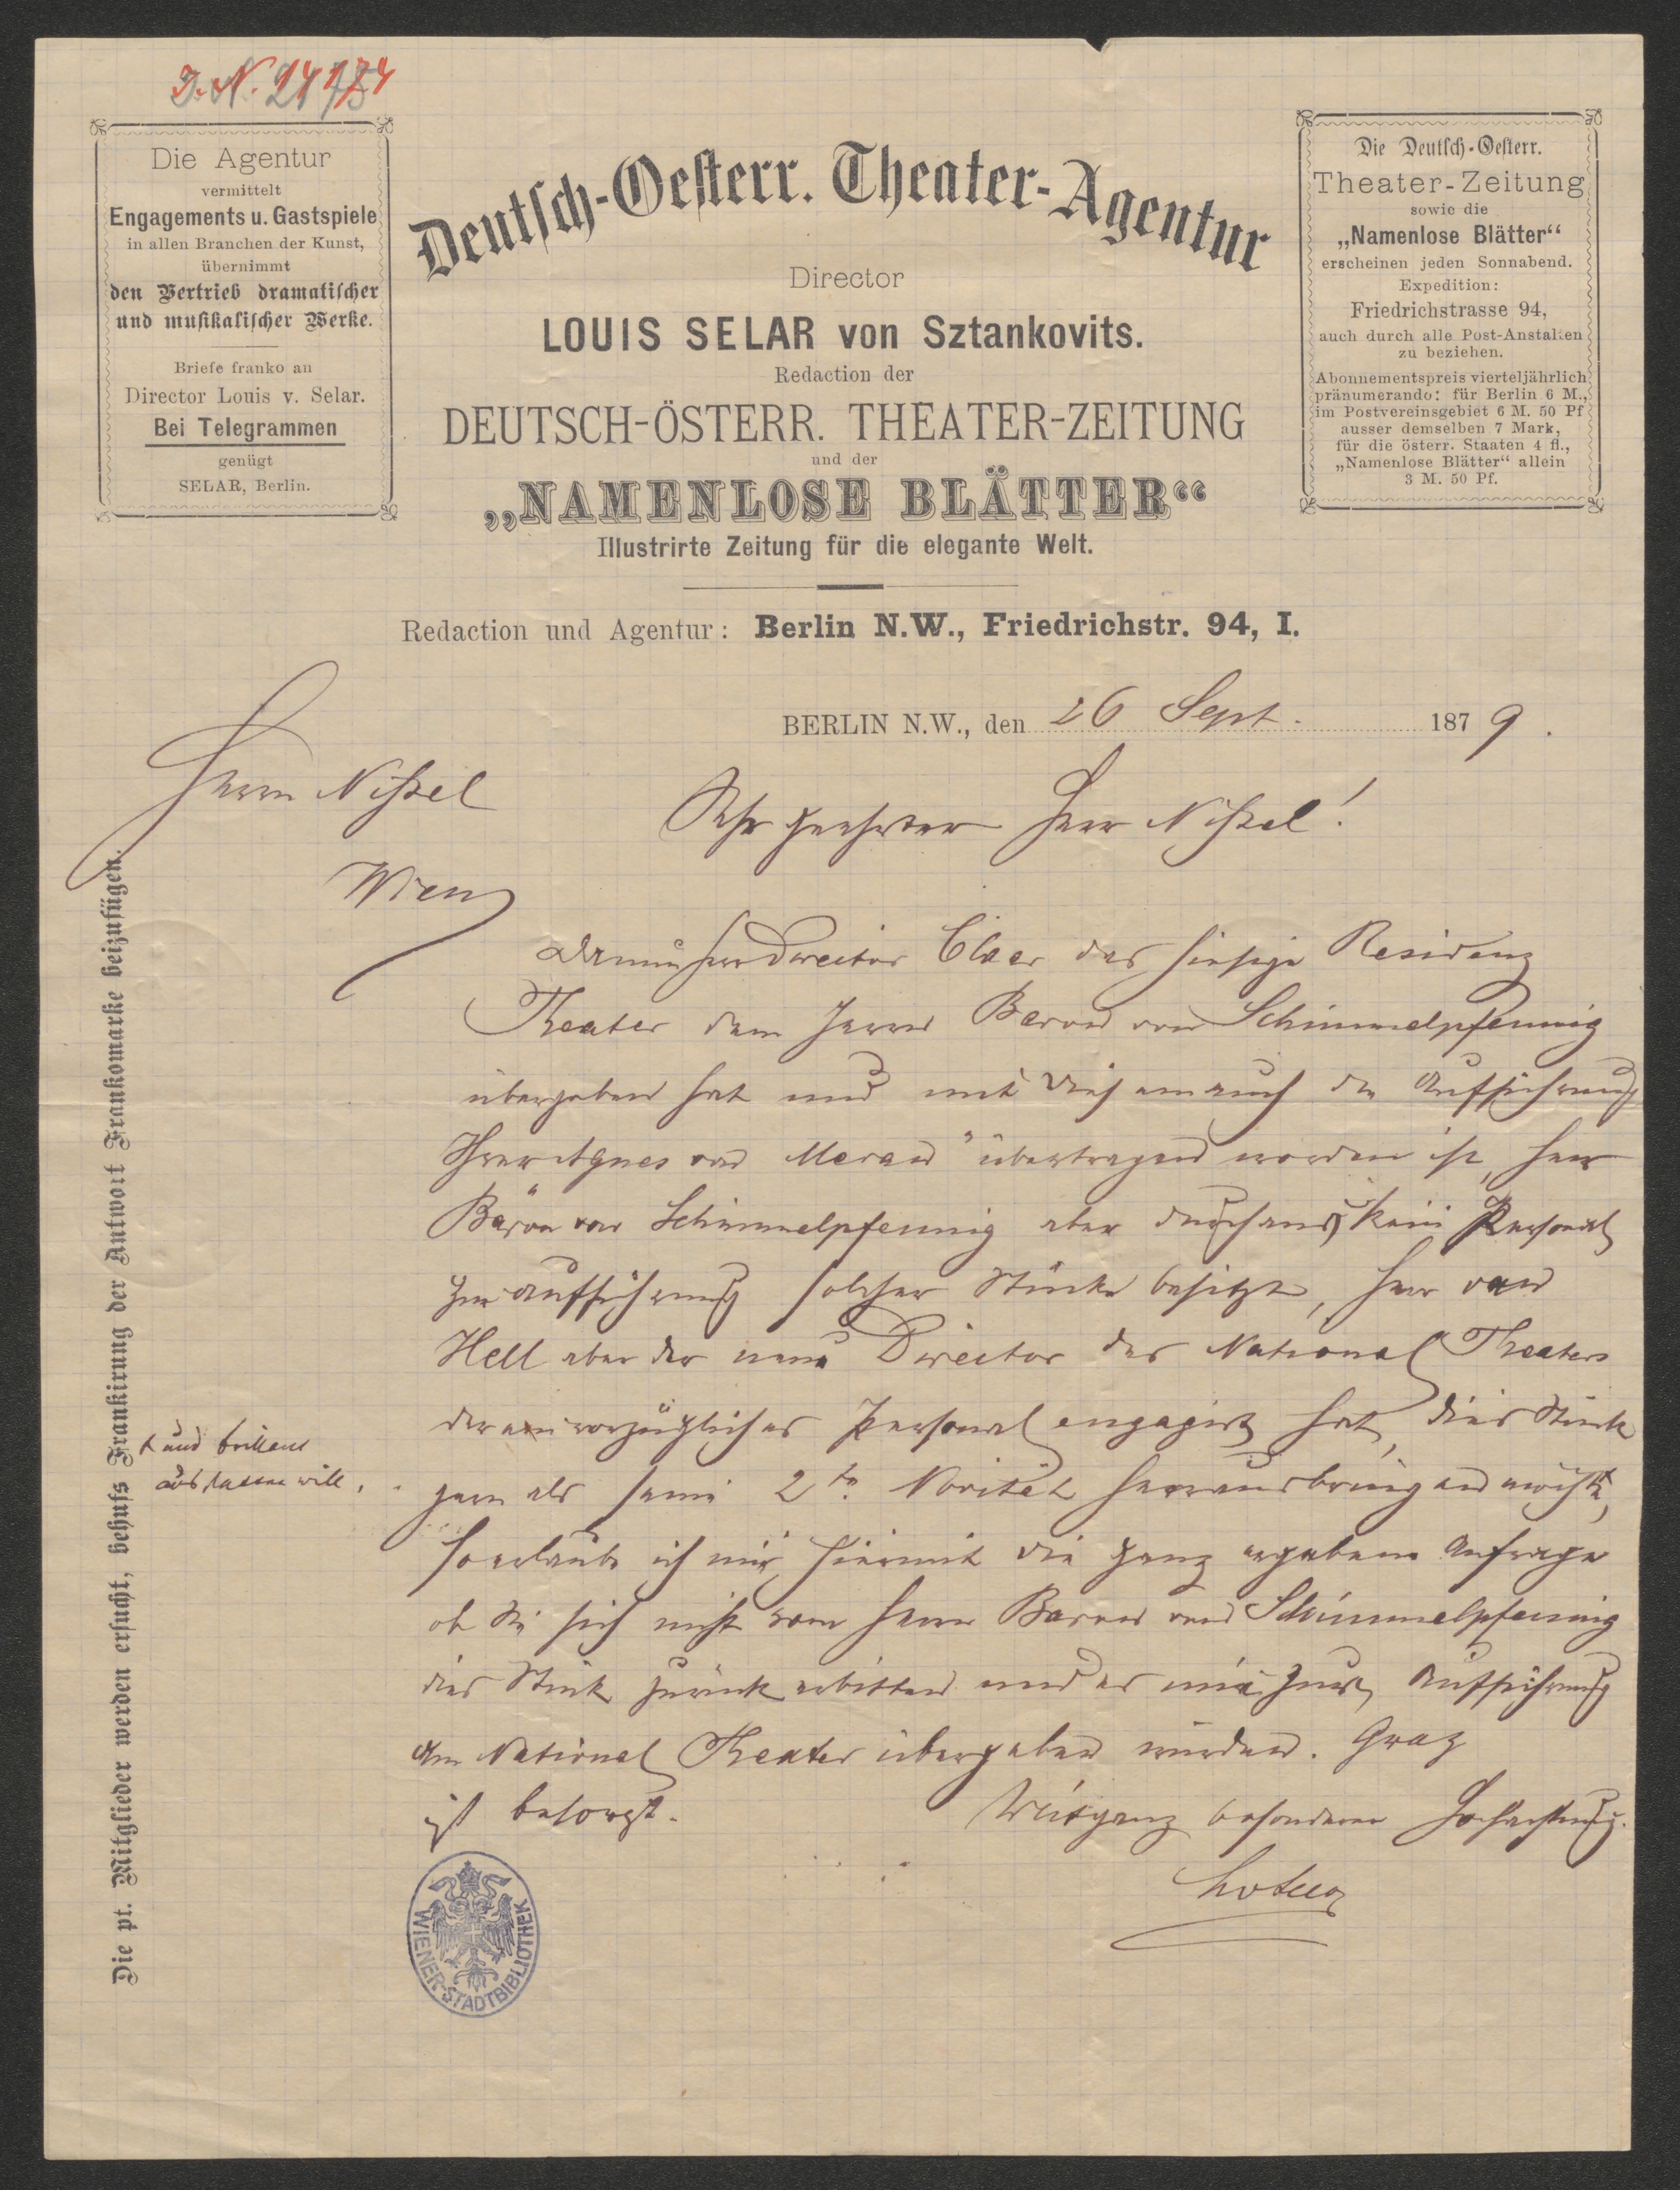 J. N. 24174
Die Agentur
vermittelt
Engagements u. Gastspiele
in allen Branchen der Kunst,
übernimmt
den Vertrieb dramatischer
und musikalischer Werke.
Briefe franko an
Director Louis v. Selar.
Bei Telegrammen
genügt
SELAR, Berlin.
Deutsch-Oesterr. Theater-Agentur
Director
LOUIS SELAR von Sztankovits.
Redaction der
DEUTSCH-ÖSTERR. THEATER-ZEITUNG
und der
„NAMENLOSE BLÄTTER“
Illustrirte Zeitung für die elegante Welt.
Die Deutsch-Oesterr.
Theater-Zeitung
sowie die
„Namenlose Blätter“
erscheinen jeden Sonnabend.
Expedition:
Friedrichstrasse 94,
auch durch alle Post-Anstalten
zu beziehen.
Abonnementspreis vierteljährlich
pränumerando: für Berlin 6 M.,
im Postvereinsgebiet 6 M. 50 Pf
ausser demselben 7 Mark,
für die österr. Staaten 4 fl.,
„Namenlose Blätter“ allein
3 M. 50 Pf.
Redaction und Agentur: Berlin N.W., Friedrichstr. 94, I.
BERLIN N.W., den 26 Sept. 1879.
Herrn Nißel
Wien
Sehr geehrter Herr Nißel!
Herr Director Claar das hiesige Residenz
Theater dem Herrn Baron von Schimmelpfennig
übergeben hat und mit diesem auch die Aufführung
Ihrer Agnes von Meran" übertragen worden ist, Herr
Baron von Schimmelpfennig aber durchaus kein Personal
zur Aufführung solcher Stücke besitzt, Herr van
Hell aber der neue Director des National Theaters
der ein vorzügliches Personal engagirt hat, dies Stück
gern als seine 2te Novität herausbringen möchte,
und brillant
ausstatten will,
so erlaube ich mir hiermit die ganz ergebene Anfrage
ob Sie sich nicht vom Herrn Baron von Schimmelpfennig
dies Stück zurück erbitten und es mir zur Aufführung
am National Theater übergeben würden. Graz
ist besorgt.
Mit ganz besonderer Hochachtung.
Die pt. Mitglieder werden ersucht, behufs Frankirung der Antwort Frankomarke beizufügen.
WIENER-STADTBIBLIOTHEK